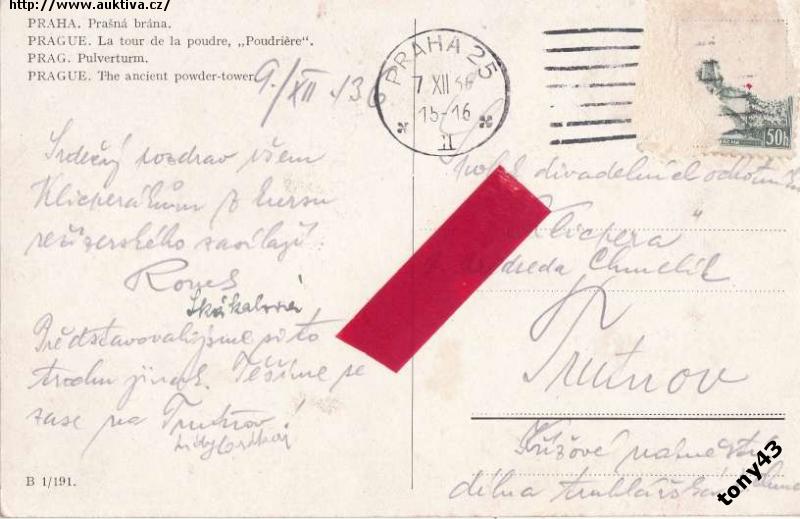 http://www.auktiva.cz/
PRAHA. Prašná brána.
PRAGUE. La tour de la poudre, „Poudrière“.
PRAG. Pulverturm.
PRAGUE. The ancient powder-tower.
9./XII 36
PRAHA 25
7 XII 36
15-16
II
50h
Srdečný pozdrav všem
Klicperákům z kursu
režisérského zasílají
Skákalová
Představovali jsme si to
trochu jinak. Těšíme se
zase na Trutnov!
Spolek divadelních ochotníků
"Klicpera"
předseda Chmelík
Trutnov
Křížové náměstí
dílna truhlářská
B 1/191.
tony43